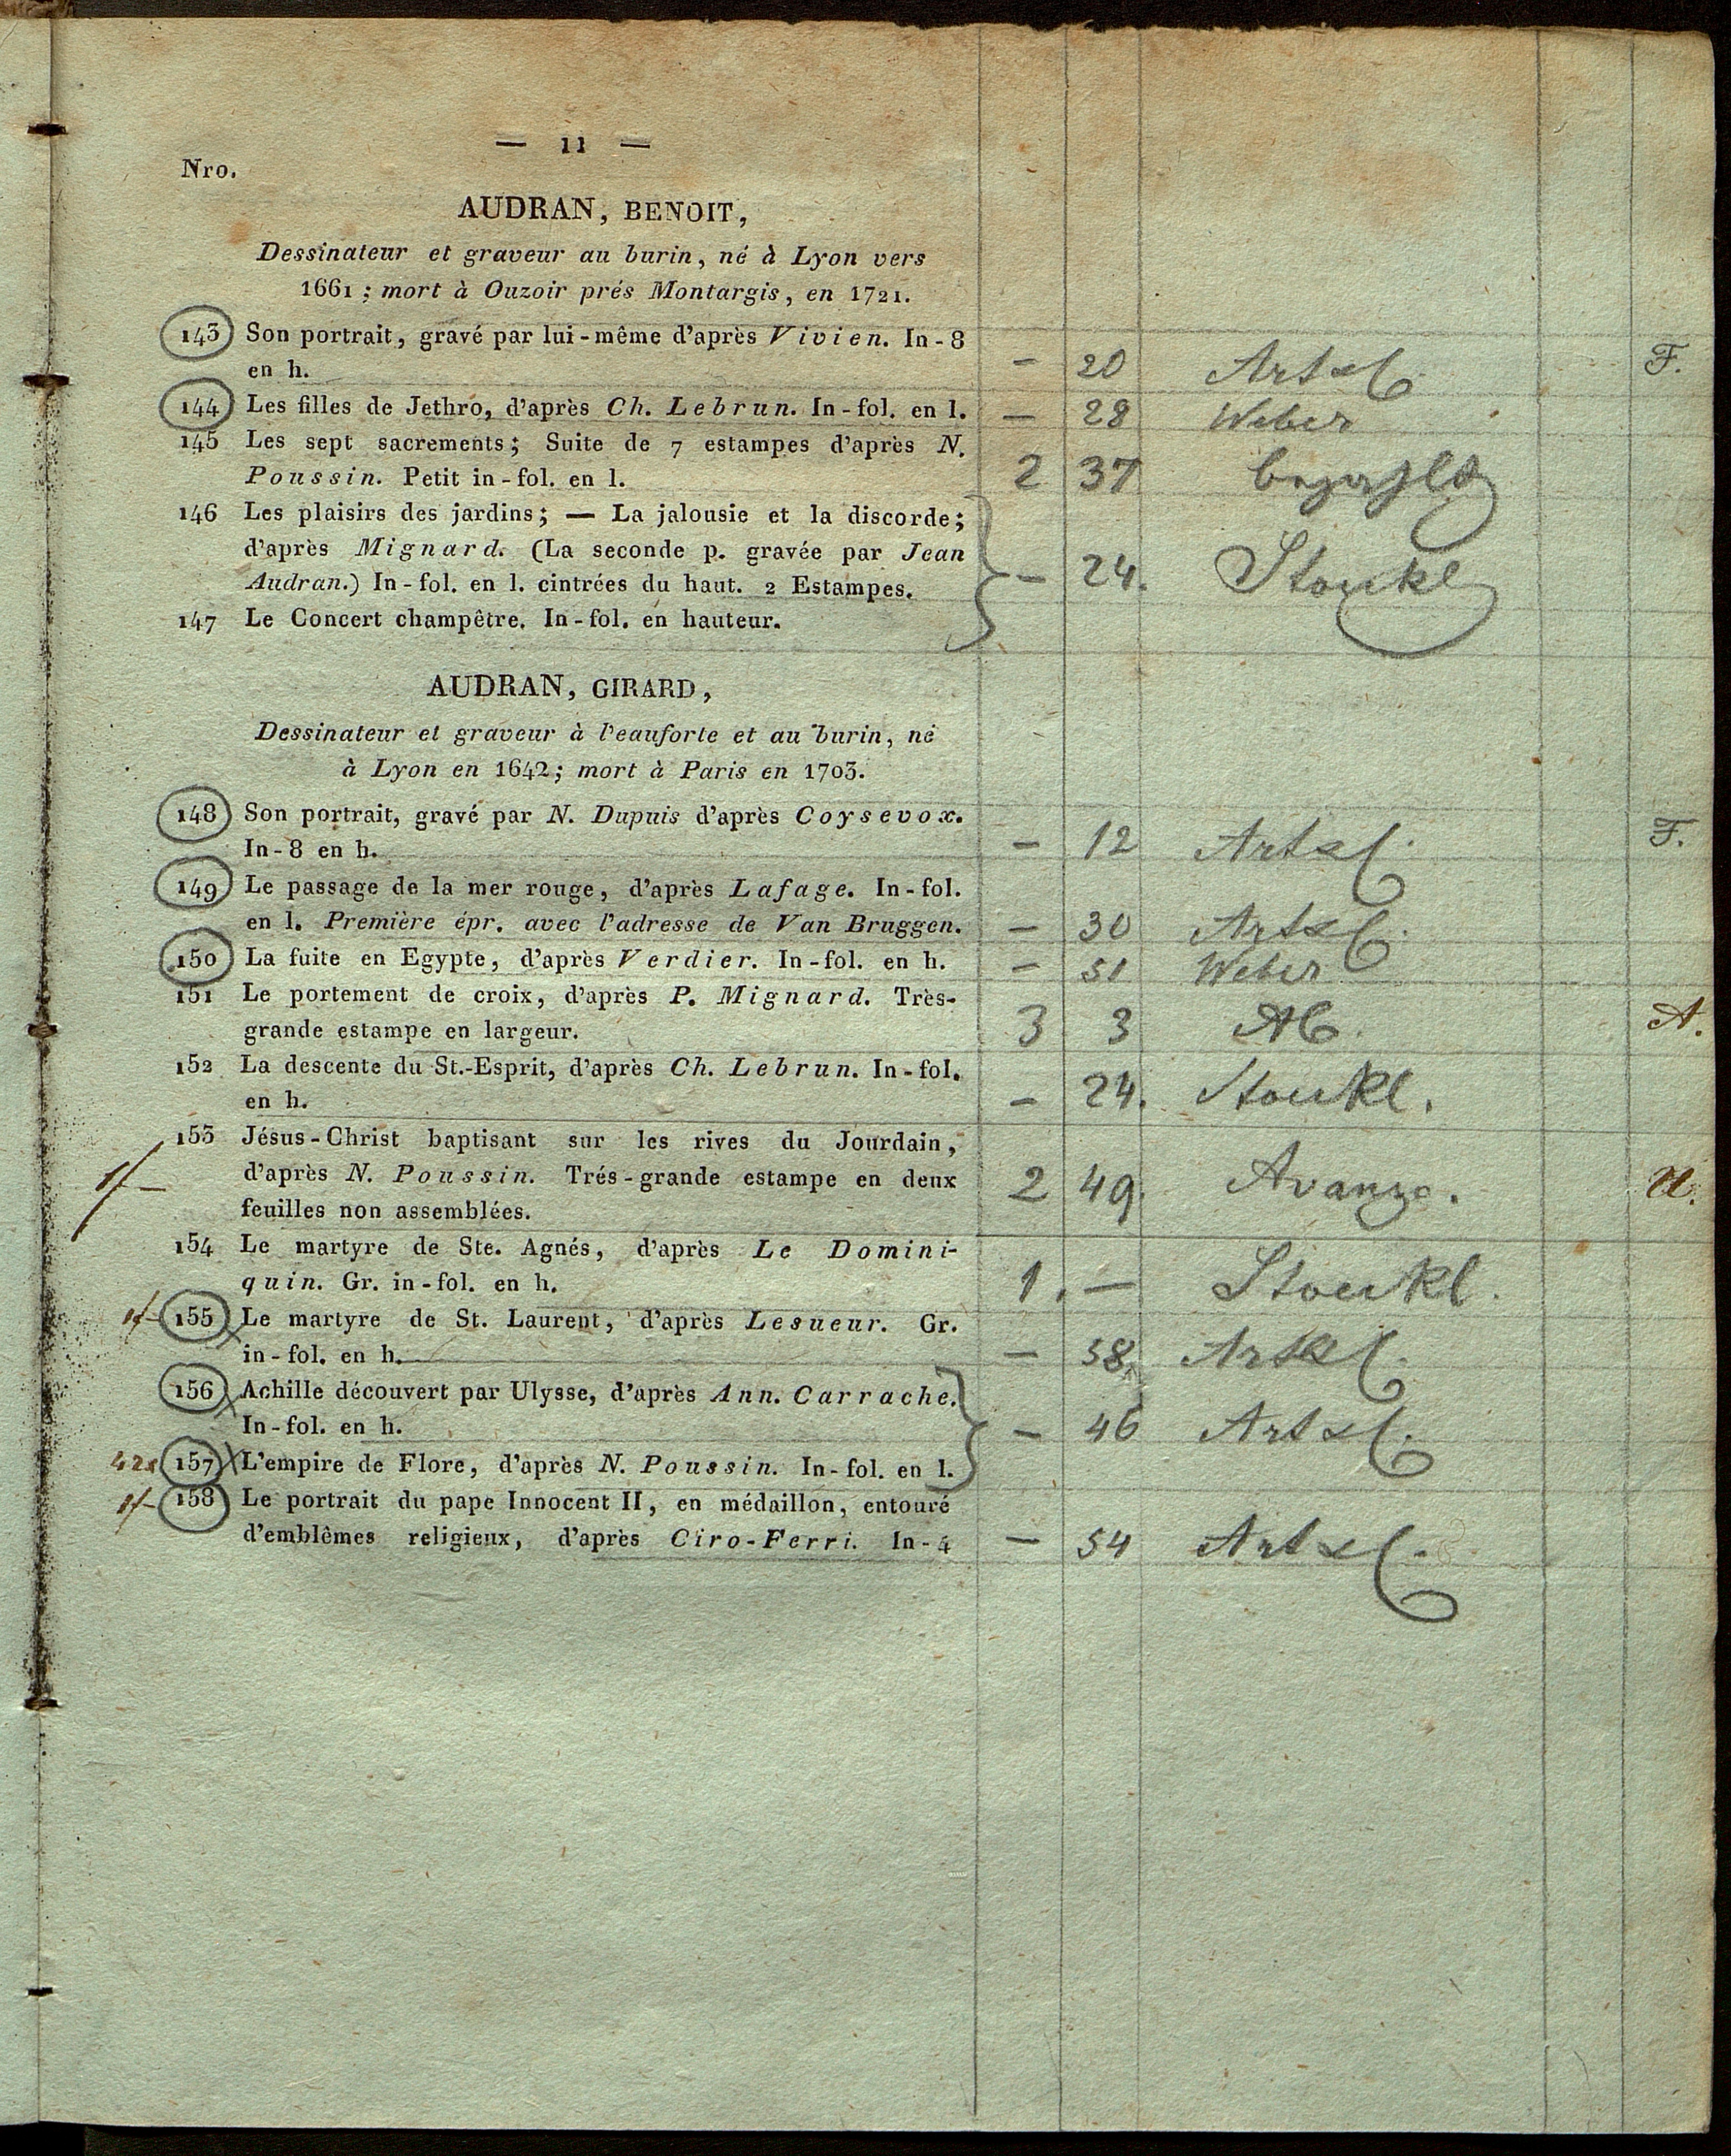 — 11 —
Nro.
AUDRAN, BENOIT,
Dessinateur et graveur au burin, né à Lyon vers
1661 ; mort à Ouzoir prés Montargis, en 1721.
143 Son portrait, gravé par lui-même d'après Vivien. In-8
en h. — 20 F.
144 Les filles de Jethro, d'après Ch. Lebrun. In-fol. en l. — 28 Weber
145 Les sept sacrements; Suite de 7 estampes d'après N.
Poussin. Petit in-fol. en l. 2 37
146 Les plaisirs des jardins; — La jalousie et la discorde;
d'après Mignard. (La seconde p. gravée par Jean
Audran.) In-fol. en l. cintrées du haut. 2 Estampes. — 24. Stoukl
147 Le Concert champêtre. In-fol. en hauteur.
AUDRAN, GIRARD,
Dessinateur et graveur à l'eauforte et au burin, né
à Lyon en 1642; mort à Paris en 1703.
148 Son portrait, gravé par N. Dupuis d'après Coysevox.
In-8 en h. — 12 F.
149 Le passage de la mer rouge, d'après Lafage. In-fol.
en l. Première épr. avec l'adresse de Van Bruggen. — 30
150 La fuite en Egypte, d'après Verdier. In-fol. en h. — 51 Weber
151 Le portement de croix, d'après P. Mignard. Très-
grande estampe en largeur. 3 3 A.
152 La descente du St.-Esprit, d'après Ch. Lebrun. In-fol.
en h. — 24. Stoukl.
153 Jésus-Christ baptisant sur les rives du Jourdain,
d'après N. Poussin. Trés-grande estampe en deux 2 49. Avanzo.
feuilles non assemblées.
154 Le martyre de Ste. Agnés, d'après Le Domini-
quin. Gr. in-fol. en h. 1. — Stoukl.
155 Le martyre de St. Laurent, d'après Lesueur. Gr.
in-fol. en h. — 58
156 Achille découvert par Ulysse, d'après Ann. Carrache.
In-fol. en h. — 46
157 L'empire de Flore, d'après N. Poussin. In-fol. en l.
158 Le portrait du pape Innocent II, en médaillon, entouré
d'emblêmes religieux, d'après Ciro-Ferri. In-4 — 54